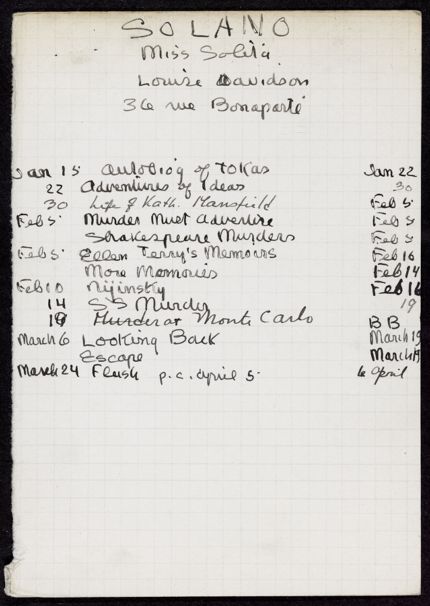 SOLANO
Miss Solita
Louise Davidson
36 rue Bonaparte
Jan 15 Autobiog of Toklas Jan 22
22 Adventures of Ideas 30
30 Life of Kath. Mansfield Feb 5
Feb 5 Murder Must Advertise Feb 5
Shakespeare Murders Feb 5
Feb 5 Ellen Terry's Memoirs Feb 16
More Memories Feb 14
Feb 10 Nijinsky Feb 16
14 SS Murder 19
19 Murder at Monte Carlo BB
March 6 Looking Back March 19
Escape March 19
March 24 Flush p.c. april 5 6 april